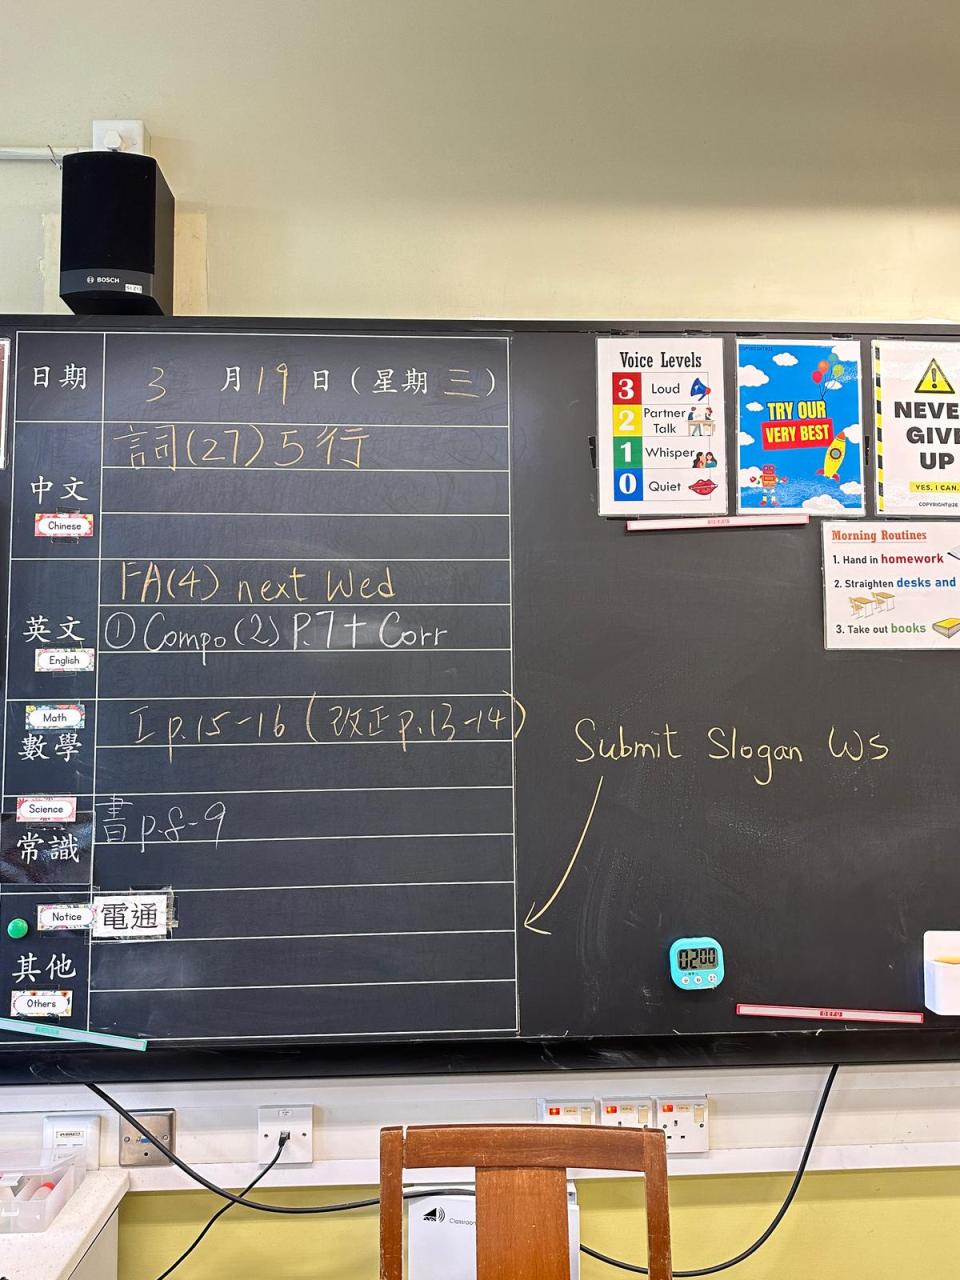 BOSCH
日期 3 月 19 日 (星期 三)
中文 詞(27) 5 行
Chinese
FA(4) next Wed
英文 ① Compo (2) P.7 + Corr
English
Math
數學 工 p.15-16 (改正 p.13-14)
Science
常識 書 p.8-9
Notice 電通
其他
Others
Submit Slogan WS
Voice Levels
3 Loud
2 Partner Talk
1 Whisper
0 Quiet
TRY OUR
VERY BEST
NEVE
GIV
UP
YES, I CAN.
Morning Routines
1. Hand in homework
2. Straighten desks and
3. Take out books
02:00
DEFU
Classroom